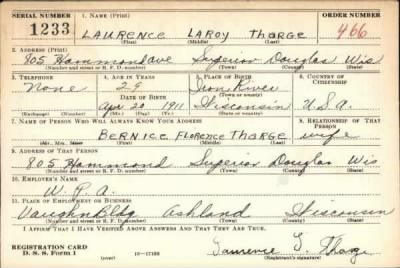 SERIAL NUMBER 1. NAME (Print) ORDER NUMBER
1233 LAURENCE LAROY Tharge 466
(First) (Middle) (Last)
2. ADDRESS (Print)
805 Hammond ave Superior Douglas Wis
(Number and street or R. F. D. number) (Town) (County) (State)
3. TELEPHONE 4. AGE IN YEARS 5. PLACE OF BIRTH 6. COUNTRY OF CITIZENSHIP
None 29 Iron River
DATE OF BIRTH (Town or county)
Apr 20 1911 Wisconsin U.S.A.
(Exchange) (Number) (Mo.) (Day) (Yr.) (State or country)
7. NAME OF PERSON WHO WILL ALWAYS KNOW YOUR ADDRESS 8. RELATIONSHIP OF THAT PERSON
BERNICE FLORENCE THARGE wife
(Mr., Mrs., Miss) (First) (Middle) (Last)
9. ADDRESS OF THAT PERSON
805 Hammond Superior Douglas Wis
(Number and street or R. F. D. number) (Town) (County) (State)
10. EMPLOYER'S NAME
W. P. A.
11. PLACE OF EMPLOYMENT OR BUSINESS
Vaughn Bldg Ashland Wisconsin
(Number and street or R. F. D. number) (Town) (County) (State)
I AFFIRM THAT I HAVE VERIFIED ABOVE ANSWERS AND THAT THEY ARE TRUE.
REGISTRATION CARD
D. S. S. Form 1 16—17105 Laurence L. Tharge